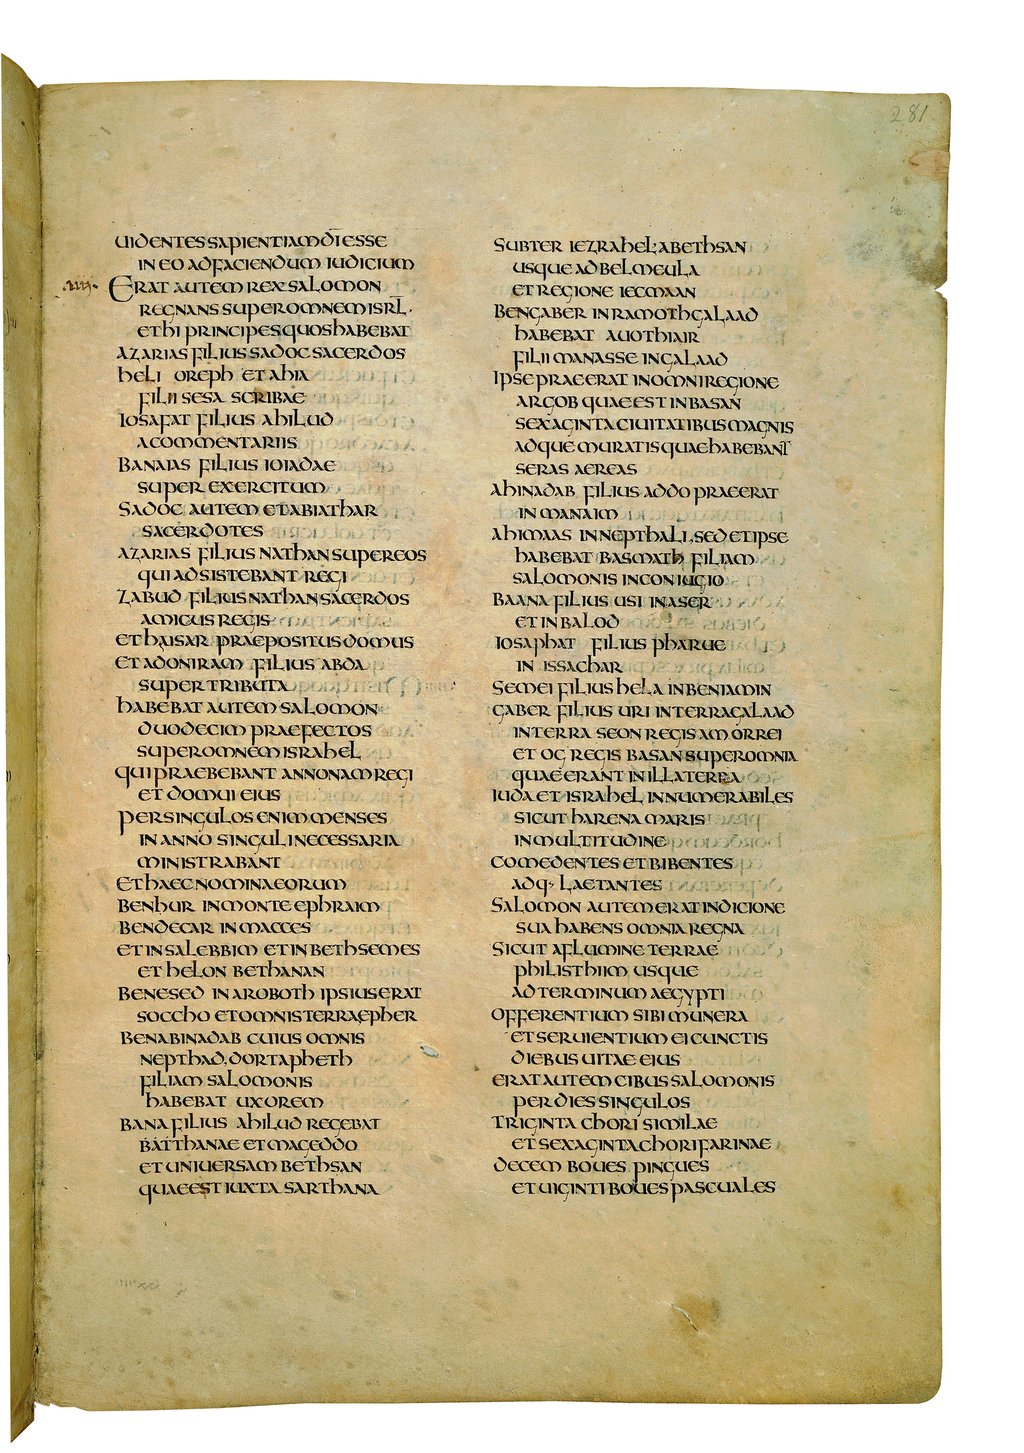 281
UIDENTES SAPIENTIAM DI ESSE
IN EO AD FACIENDUM IUDICIUM
.IIII.
ERAT AUTEM REX SALOMON
REGNANS SUPER OMNEM ISRL.
ET HI PRINCIPES QUOS HABEBAT
AZARIAS FILIUS SADOC SACERDOS
HELI OREPH ET AHIA
FILII SESA SCRIBAE
IOSAFAT FILIUS AHILUD
A COMMENTARIIS
BANAIAS FILIUS IOIADAE
SUPER EXERCITUM
SADOC AUTEM ET ABIATHAR
SACERDOTES
AZARIAS FILIUS NATHAN SUPER EOS
QUI ADSISTEBANT REGI
ZABUD FILIUS NATHAN SACERDOS
AMICUS REGIS
ET HAISAR PRAEPOSITUS DOMUS
ET ADONIRAM FILIUS ABDA
SUPER TRIBUTA
HABEBAT AUTEM SALOMON
DUODECIM PRAEFECTOS
SUPER OMNEM ISRAHEL
QUI PRAEBEBANT ANNONAM REGI
ET DOMUI EIUS
PER SINGULOS ENIM MENSES
IN ANNO SINGULI NECESSARIA
MINISTRABANT
ET HAEC NOMINA EORUM
BENHUR IN MONTE EPHRAIM
BENDECAR IN MACCES
ET IN SALEBBIM ET IN BETHSEMES
ET HELON BETHANAN
BENESED IN AROBOTH IPSIUS ERAT
SOCCHO ET OMNIS TERRA EPHER
BENABINADAB CUIUS OMNIS
NEPTHAD. DOR TAPHETH
FILIAM SALOMONIS
HABEBAT UXOREM
BANA FILIUS AHILUD REGEBAT
BATTHANAE ET MAGEDDO
ET UNIUERSAM BETHSAN
QUAE EST IUXTA SARTHANA
SUBTER IEZRAHEL. A BETHSAN
USQUE AD BELMEULA
ET REGIONE IECMAAN
BENGABER IN RAMOTH GALAAD
HABEBAT AUOTHIAIR
FILII MANASSE IN GALAAD
IPSE PRAEERAT IN OMNI REGIONE
ARGOB QUAE EST IN BASAN
SEXAGINTA CIUITATIBUS MAGNIS
ADQUE MURATIS QUAE HABEBANT
SERAS AEREAS
AHINADAB FILIUS ADDO PRAEERAT
IN MANAIM
AHIMAAS IN NEPTHALI. SED ET IPSE
HABEBAT BASMATH FILIAM
SALOMONIS IN CONIUGIO
BAANA FILIUS USI IN ASER
ET IN BALOD
IOSAPHAT FILIUS PHARUE
IN ISSACHAR
SEMEI FILIUS HELA IN BENIAMIN
GABER FILIUS URI IN TERRA GALAAD
IN TERRA SEON REGIS AMORREI
ET OG REGIS BASAN SUPER OMNIA
QUAE ERANT IN ILLA TERRA
IUDA ET ISRAHEL INNUMERABILES
SICUT HARENA MARIS
IN MULTITUDINE
COMEDENTES ET BIBENTES
ADQ. LAETANTES
SALOMON AUTEM ERAT IN DICIONE
SUA HABENS OMNIA REGNA
SICUT A FLUMINE TERRAE
PHILISTHIIM USQUE
AD TERMINUM AEGYPTI
OFFERENTIUM SIBI MUNERA
ET SERUIENTIUM EI CUNCTIS
DIEBUS UITAE EIUS
ERAT AUTEM CIBUS SALOMONIS
PER DIES SINGULOS
TRIGINTA CHORI SIMILAE
ET SEXAGINTA CHORI FARINAE
DECEM BOUES PINGUES
ET UIGINTI BOUES PASCUALES